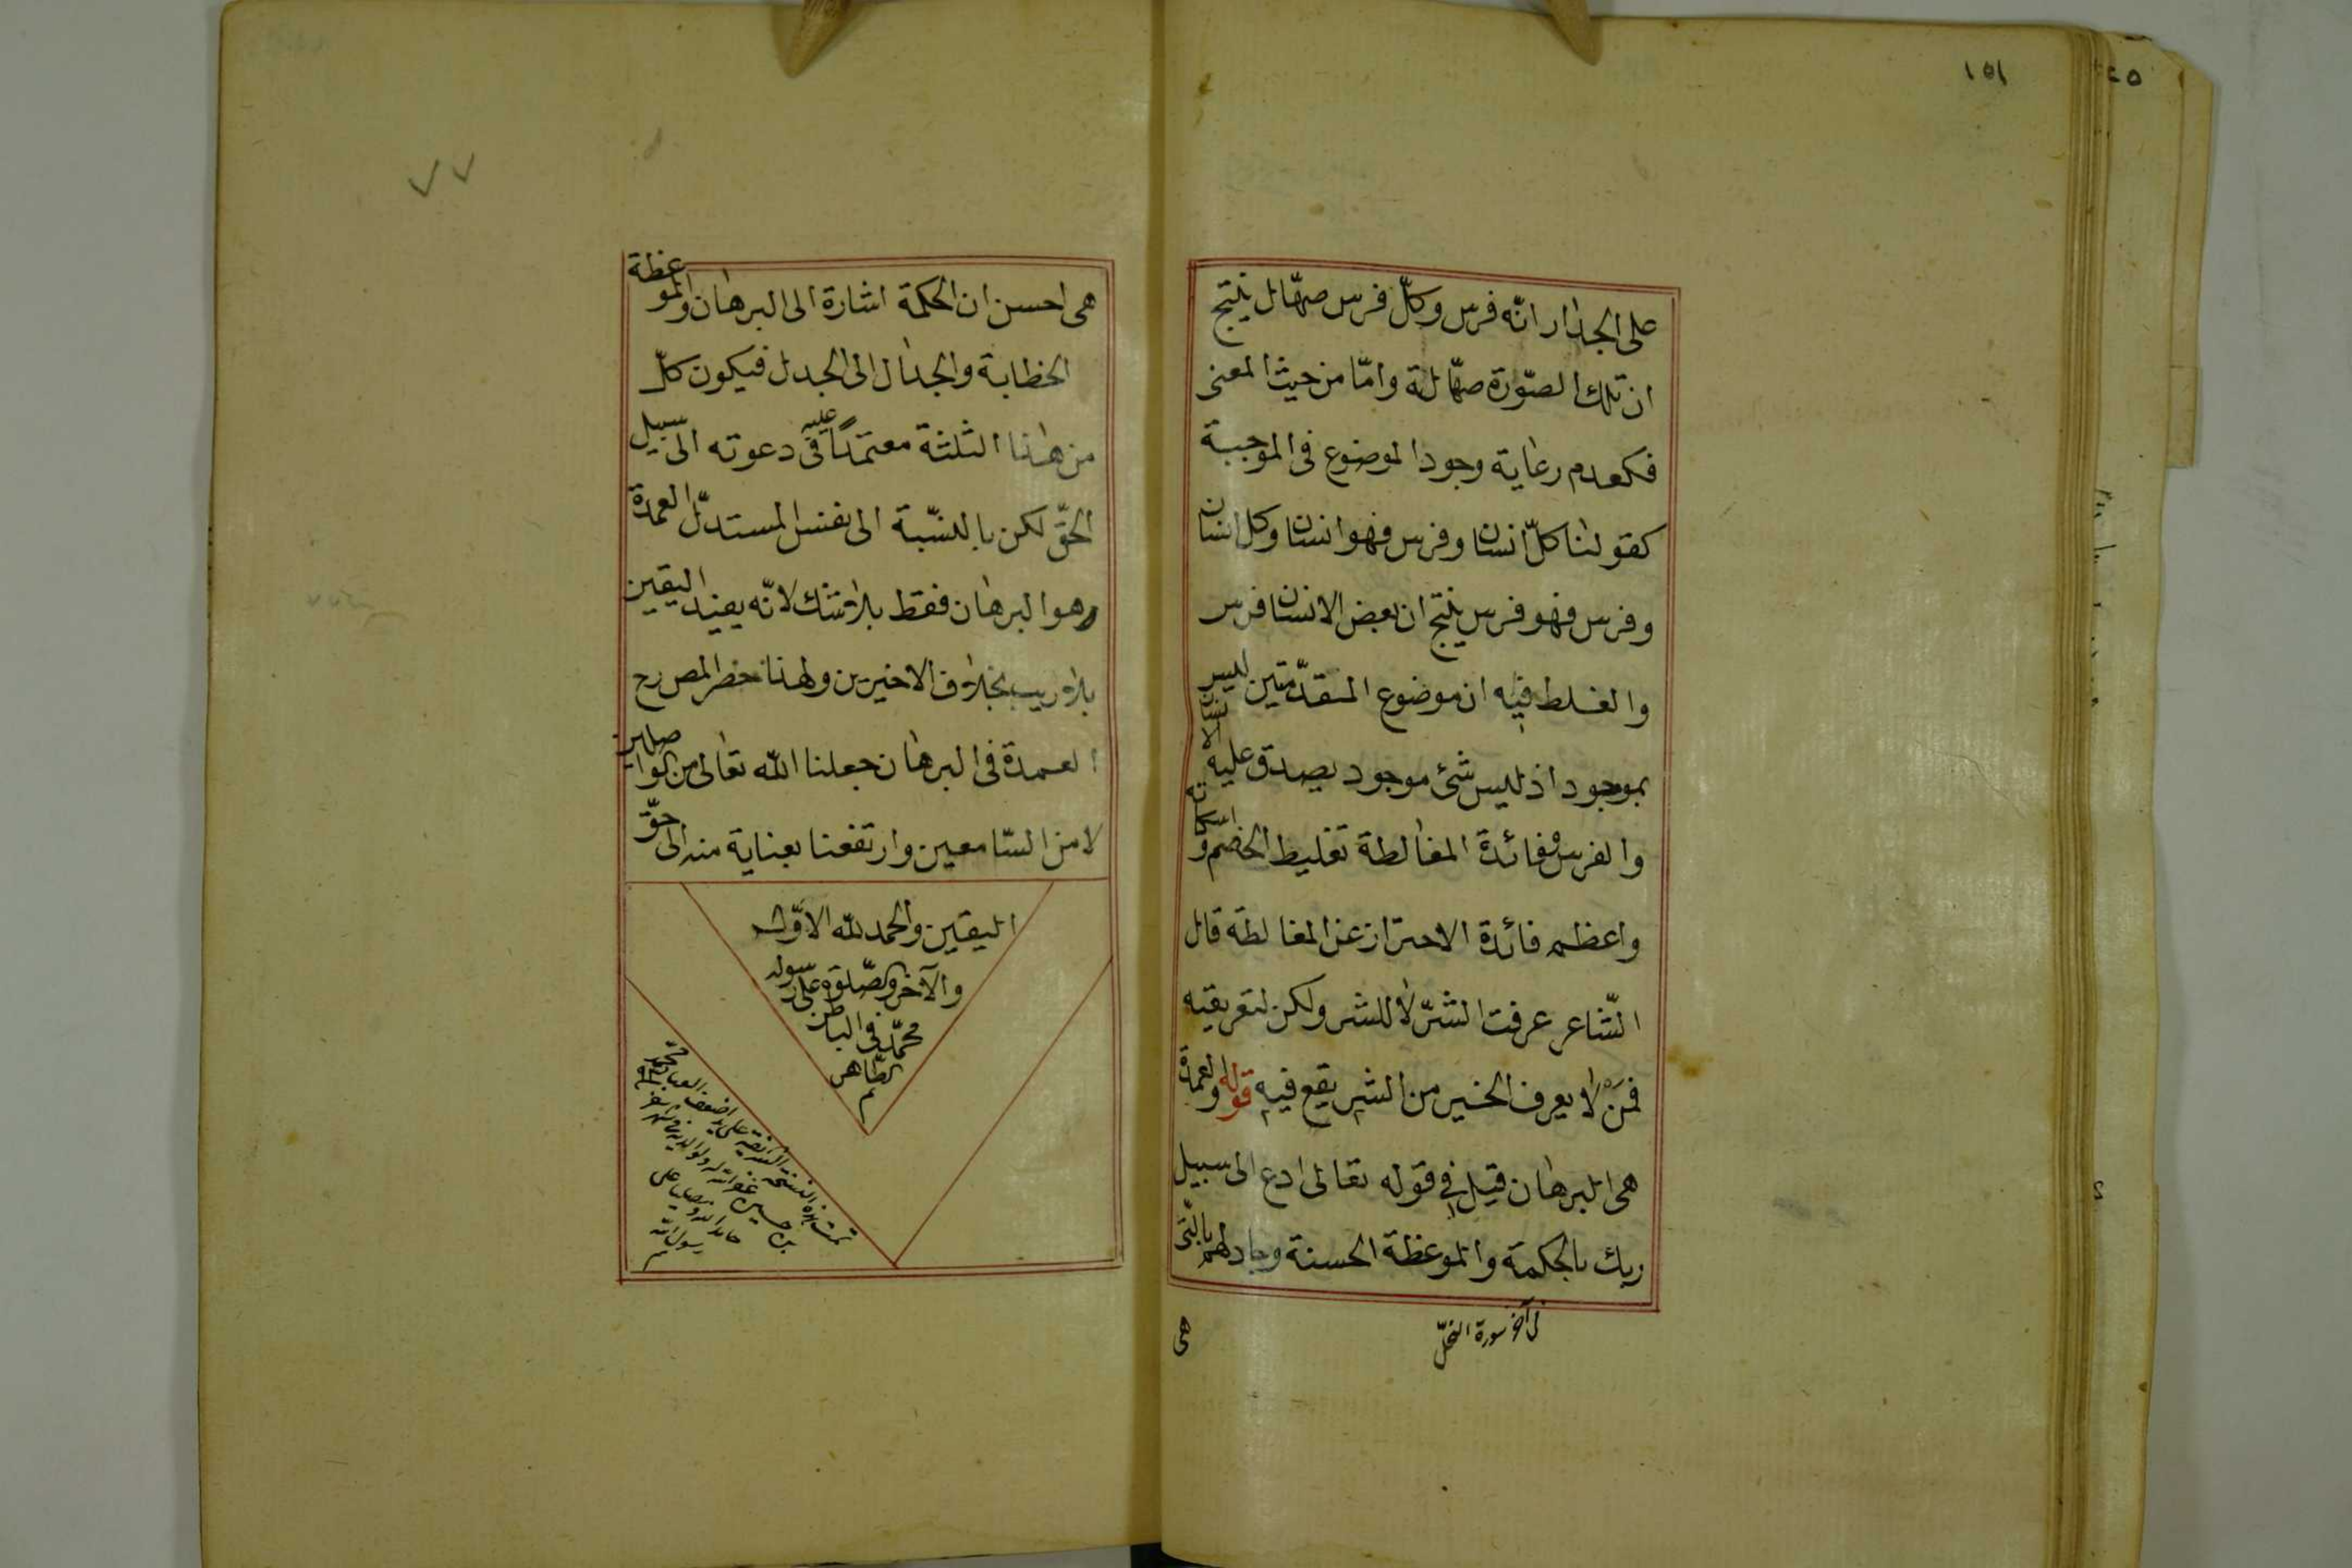 ١٥١
على الجدار انّه فرس وكلّ فرس صهّال ينتج
ان تلك الصّورة صهّالة وامّا من حيث المعنى
فكعدم رعاية وجود الموضوع فى الموجبة
كقولنا كلّ انسان وفرس فهو انسان وكل انسان
وفرس فهو فرس ينتج ان بعض الانسان فرس
والغلط فيه ان موضوع المقدّمتين ليس
بموجود اذ ليس شئ موجود يصدق عليه الانسان
والفرس ففائدة المغالطة تغليط الخصم واسكاته
واعظم فائدة الاحتراز عن المغالطة قال
الشّاعر عرفت الشّرّ لا للشر ولكن لتوقيه
فمن لا يعرف الخير من الشر يقع فيه قوله والعمدة
هى البرهان قيل فى قوله تعالى ادع الى سبيل
ربك بالحكمة والموعظة الحسنة وجادلهم بالّتى
فى آخر سورة النحل
هى
٧٧
هى احسن ان الحكمة اشارة الى البرهان والموعظة
الخطابة والجدال الى الجدل فيكون كلّ
من هذا الثلثة معتمدًا عليه فى دعوته الى سبيل
الحقّ لكن بالنسّبة الى نفس المستدلّ العمدة
وهو البرهان فقط بلا شك لانّه يفيد اليقين
بلا ريب بخلاف الاخيرين ولهذا حصر المص رح
العمدة فى البرهان جعلنا الله تعالى من الواصلين
لا من السّامعين وارتفعنا بعناية منه الى حقّ
اليقين والحمد لله الاوّل
والآخر والصّلوة على رسوله
محمّد فى الباطن
والظّاهر
م
تمت هذه النسخة الشريفة على يد اضعف العباد محمّد
بن حسين غفر الله له ولوالديه
حامدا لله ومصليا على
رسول الله
م